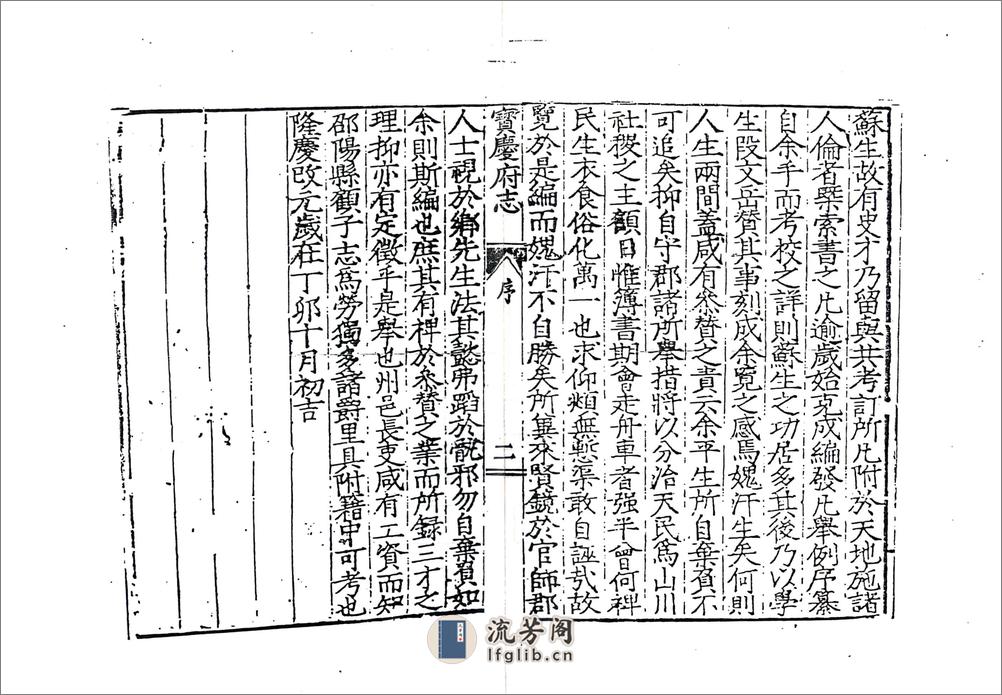 蘇生故有史才乃留與共考訂所凡附於天地施諸
人倫者槩索書之凡逾歲始克成編發凡舉例序纂
自余手而考校之詳則蘇生之功居多其後乃以學
生段文岳贊其事刻成余覽之感焉媿汗生矣何則
人生兩間蓋咸有叅贊之責云余平生所自棄負不
可追矣抑自守郡諸所舉措將以分治天民爲山川
社稷之主顧日惟簿書期會走舟車者强半曾何裨
民生衣食俗化萬一也求仰頫無慙渠敢自誣哉故
覽於是編而媿汗不自勝矣所兾來賢鏡於官師郡
寶慶府志
序
二
人士視於鄉先生法其懿弗蹈於骫邪勿自棄負如
余則斯編也庶其有裨於叅贊之業而所録三才之
理抑亦有定徵乎是舉也州邑長吏咸有工資而知
邵陽縣顧子志爲勞獨多諸爵里具附籍中可考也
隆慶改元歲在丁卯十月初吉
流芳阁
lfglib.cn